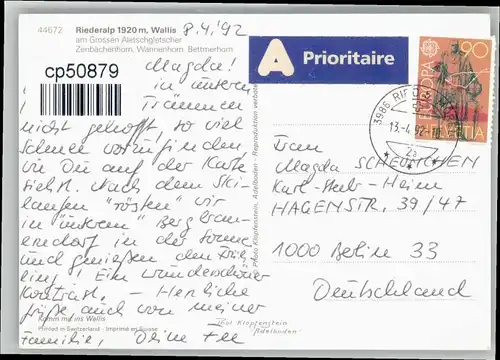 44672
Riederalp 1920 m, Wallis
am Grossen Aletschgletscher
Zenbächenhorn, Wannenhorn, Bettmerhorn
8.4.'92
cp50879
Magda!
in unseren
Träumen
nicht gehofft, so viel
Schnee vorzufinden,
wie Du auf der Karte
siehst. Nach dem Ski-
laufen "rösten" wir
in "unserem" Berghau-
erndorf in der Sonne
und genießen den Früh-
ling! Ein wunderschöner
Kontrast. – Herzliche
Grüße, auch von meiner
Familie, Deine
Komm mit ins Wallis
Printed in Switzerland - Imprimé en Suisse
Photo Klopfenstein, Adelboden - Reproduction verboten
Thor Klopfenstein
Adelboden
A Prioritaire
EUROPA
90
HELVETIA
3986
13.-4.92
Frau
Magda SCHEUNCHEN
Karl-Heim
HAGENSTR. 39/47
1000 Berlin 33
Deutschland